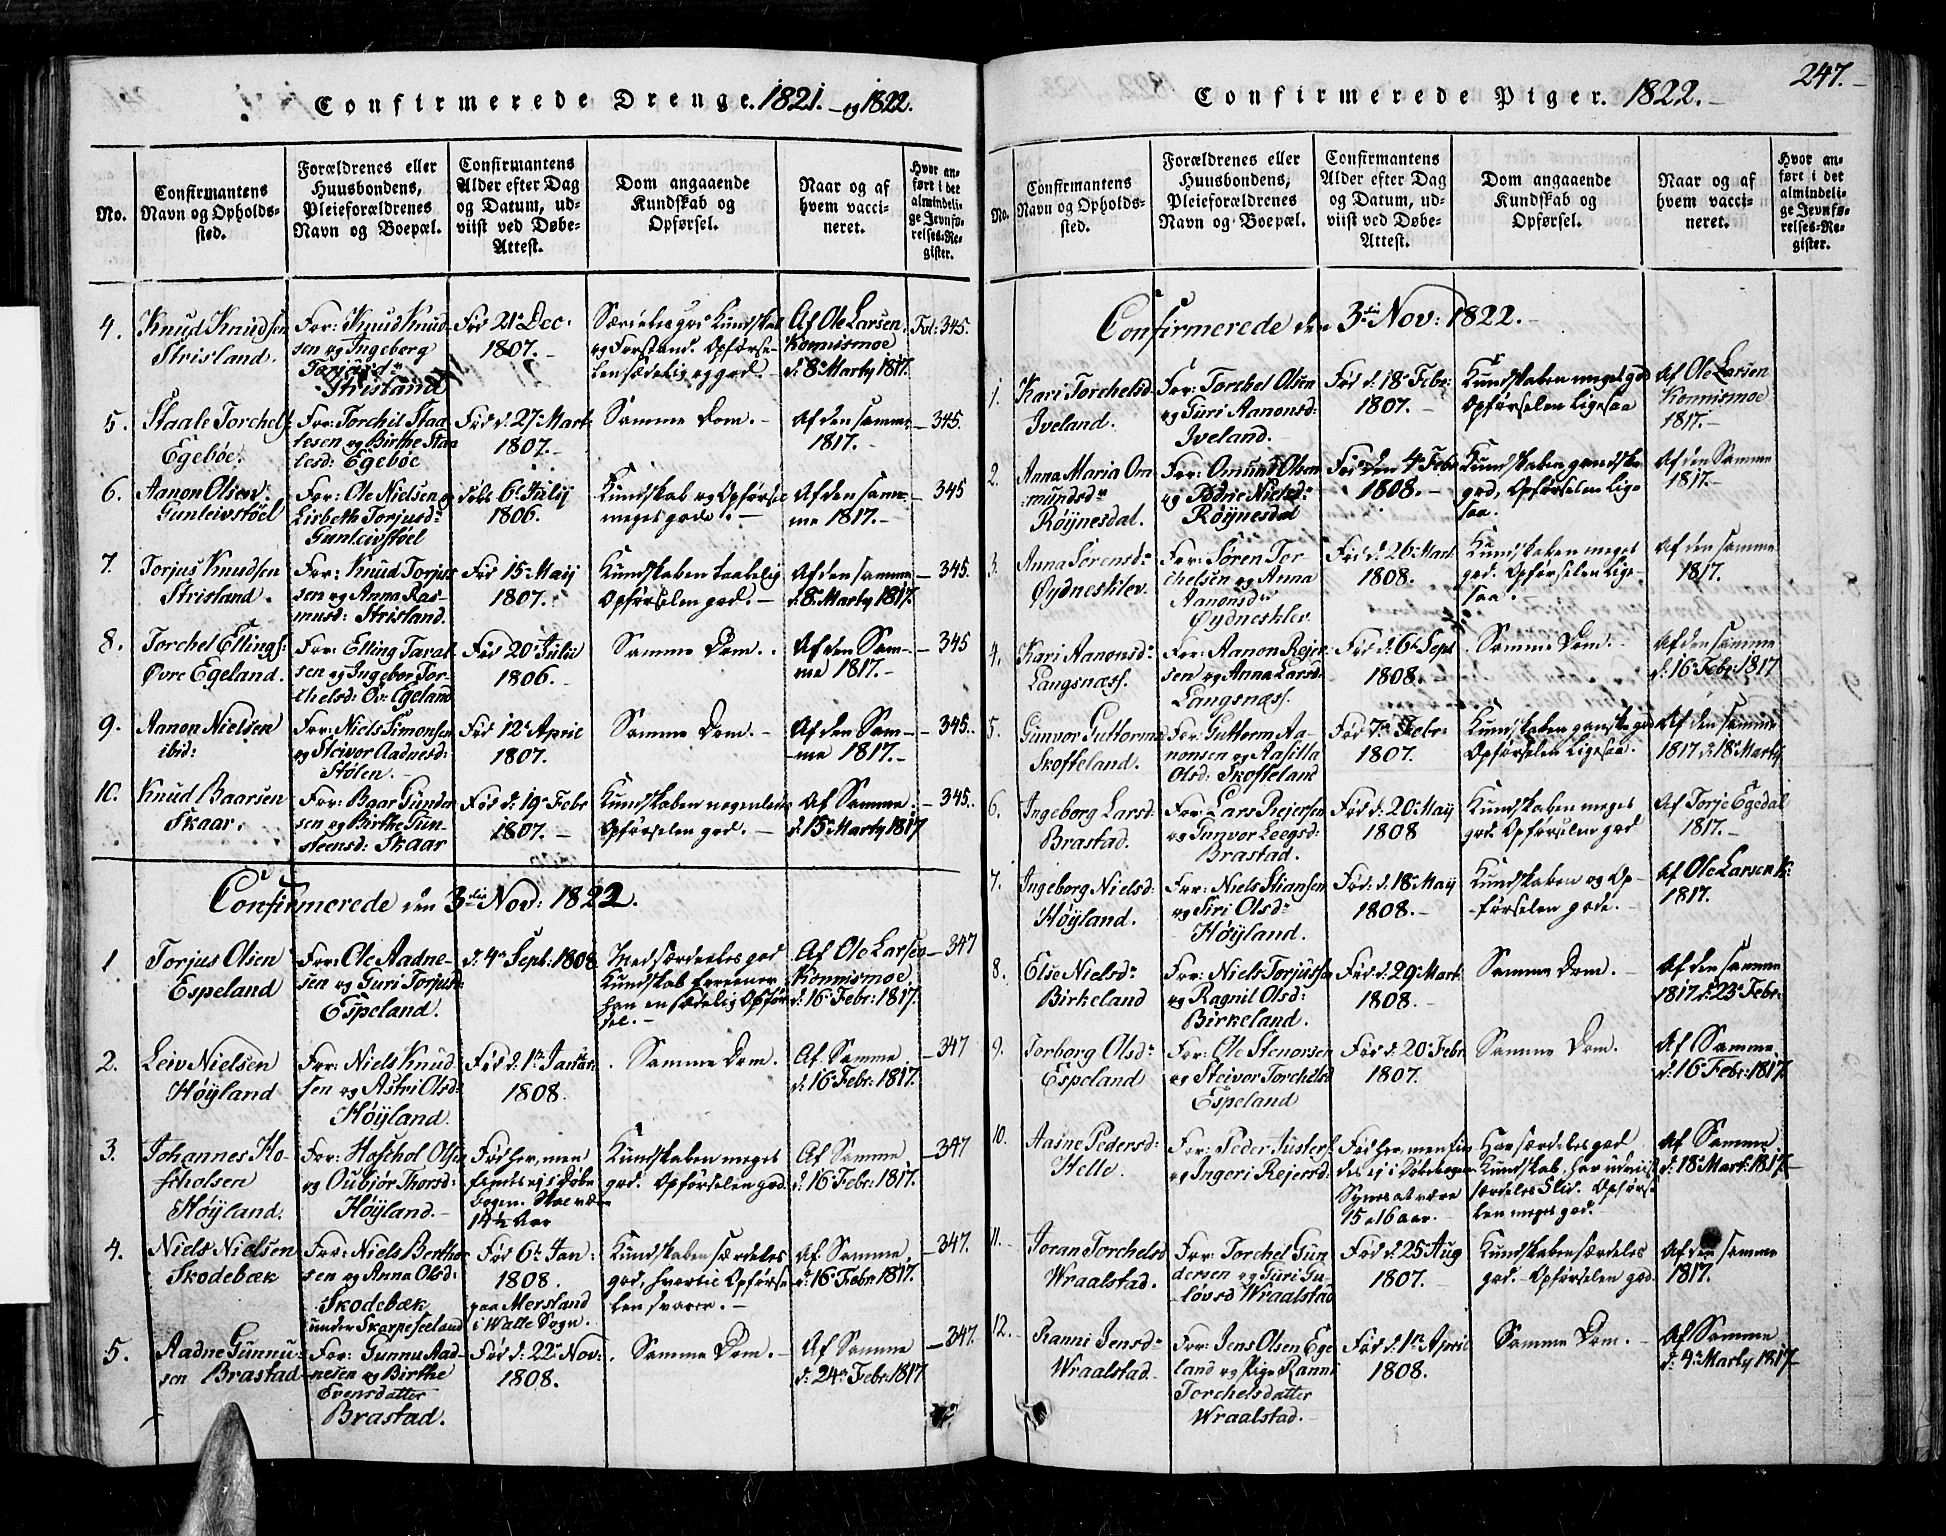 Confirmerede Drenge. 1821. og 1822.
No.
Confirmantens
Navn og Opholds-
sted.
Forældrenes eller
Huusbondens,
Pleieforældrenes
Navn og Boepæl.
Confirmantens
Alder efter Dag
og Datum, ud-
viist ved Døbe-
Attest.
Dom angaaende
Kundskab og
Opførsel.
Naar og af
hvem vacci-
neret.
Hvor an-
ført i det
almindeli-
ge Jevnfø-
relses-Re-
gister.
4.
Knud Knudsen
Strisland.
For: Knud Knud-
sen og Ingeberg
Torjusd:
Strisland
Fød 21de Dec:
1807.
Særdeles god Kundskab
og Forstand. Opførse-
len sædelig og god.
Af Ole Larsen
Konnismoe
d: 8de Marty 1817.
Fol: 345.
5.
Staale Torchels:
Egebøe.
For: Torchil Staa-
lesen og Birthe Staa-
lesd: Egebøe
Fød d. 27 Mart:
1807.
Samme Dom.
Af den samme
1817.
345.
6.
Aanon Olsen
Gunleivstøel
For: Ole Nielsen og
Lisbeth Torjusd:
Gunleivstøel
Døbt 6te July
1806.
Kundskab og Opførsel
meget gode.
Af den sam-
me 1817.
345
7.
Torjus Knudsen
Strisland.
For: Knud Torjus-
sen og Anna Ras-
musd: Strisland.
Fød 15de May
1807.
Kundskaben taalelig
Opførselen god.
Af den samme
d: 8de Marty 1817.
345.
8.
Torchel Ellings:
Øvre Egeland.
For: Elling Taral-
sen og Ingebor Tor-
chelsd: Øv: Egeland
Fød 20de Julie
1806.
Samme Dom.
Af den Sam-
me 1817.
345
9.
Aanon Nielsen
ibid:
For: Niels Simonsen
og Steivor Aadnesd:
Stølen.
Fød 12te April
1807.
Samme Dom.
Af den Sam-
me 1817.
345.
10.
Knud Baarsen
Skaar.
For: Baar Gunder-
sen og Birthe Gun-
steensd: Skaar
Fød d: 19de Febr
1807.
Kundskaben nogenledes
Opførselen god.
Af Samme
d: 15de Marty 1817
345.
Confirmerede den 3die Nov: 1822.
1
Torjus Olsen
Espeland
For: Ole Aadne-
sen og Guri Torjusd:
Espeland.
d: 4de Sept: 1808
Med særdeeles god
Kundskab forener
han en sædelig Opfør-
sel.
Af Ole Larsen
Konnismoe
d: 16 Febr: 1817.
347
2.
Leiv Nielsen
Høyland
For: Niels Knud-
sen og Astri Olsd:
Høyland.
Fød d. 1te Januar
1808.
Samme Dom.
Af Samme
d: 16 Febr: 1817.
347
3.
Johannes Ho-
scholsen
Høyland.
For: Hoschol Olsen
og Oubjør Thorsd:
Høyland.
Fød her, men
fandtes ej i Døbe-
bogen. Skal være
14½ Aar
Kundskaben meget
god. Opførselen god.
Af Samme
d: 16 Febr: 1817.
347
4.
Niels Nielsen
Skodebæk
For: Niels Berthor-
sen og Anna Olsd:
Skodebæk
under Skarpeseeland
Fød 6te Jan:
1808.
paa Mersland
i Walle Sogn.
Kundskaben særdeles
god, hvortil Opførse-
len svarer.
Af Samme
d: 16 Febr: 1817.
347.
5.
Aadne Gunnu-
sen Brastad
For: Gunnu Aad-
nesen og Birthe
Evensdatter
Brastad.
Fød d: 22de Nov:
1808.
Samme Dom.
Af Samme
d: 24de Febr: 1817
347.
Confirmerede Piger. 1822.
247.
No.
Confirmantens
Navn og Opholds-
sted.
Forældrenes eller
Huusbondens,
Pleieforældrenes
Navn og Boepæl.
Confirmantens
Alder efter Dag
og Datum, ud-
viist ved Døbe-
Attest.
Dom angaaende
Kundskab og
Opførsel.
Naar og af
hvem vacci-
neret.
Hvor an-
ført i det
almindeli-
ge Jevnfø-
relses-Re-
gister.
Confirmerede den 3die Nov: 1822.
1.
Kari Torchelsd:
Iveland.
For: Torchel Olsen
og Guri Aanonsd:
Iveland.
Fød d: 18de Febr:
1807.
Kundskaben meget god
Opførselen ligesaa
Af Ole Larsen
Konnismoe
1817.
2.
Anna Maria Om-
mundsdr
Røynesdal.
For: Omund Olsen
og Nielsdr
Røynesdal
Fød den 4de Febr:
1808.
Kundskaben gandske
god, Opførselen lige-
saa.
Af den Samme
1817.
3.
Anna Sørensdr
Øydneskilev.
For: Søren Tor-
chelsen og Anna
Aanonsdr
Øydneskilev
Fød d. 26de Mart:
1808.
Kundskaben meget
god. Opførselen lige-
saa.
Af den samme
1817.
4.
Kari Aanonsdr
Langsnæss.
For: Aanon Rejer-
sen og Anna Larsd:
Langsnæss.
Fød d. 6te Sept
1808.
Samme Dom.
Af den samme
d: 16 Febr: 1817
5.
Gunvor Guttormsd
Skofteland.
For: Guttorm Aa-
nonsen og Aasilla
Olsd: Skofteland
Fød 7de Febr:
1807.
Kundskaben ganske god
Opførselen ligesaa.
Af den samme
1817 d: 18 Marty
6.
Ingeborg Larsd:
Brastad.
For: Lars Rejersen
og Gunvor Leegsd:
Brastad.
Fød d: 20de May
1808
Kundskaben meget
god. Opførselen god
Af Torje Egedal
1817.
7.
Ingeborg Nielsd:
Høyland.
For: Niels Stiansen
og Siri Olsdr
Høyland.
Fød: d: 18de May
1808.
Kundskaben og Op-
førselen gode.
Af Ole Larsen K:
1817.
8.
Else Nielsdr
Birkeland
For: Niels Torjussen
og Ragnil Olsd:
Birkeland.
Fød d: 29de Mart:
1808.
Samme Dom.
Af den samme
1817 d: 23de Febr:
9.
Torborg Olsdr
Espeland
For: Ole Stenorsen
og Steivor Torchelsd
Espeland
Fød d: 20de Febr
1807.
Samme Dom.
Af Samme
d: 16 Febr: 1817.
10.
Aasne Pedersd:
Helle.
For: Peder Justess:
og Ingeri Rejersd:
Fød her, men fin-
des ej i Døbebogen
Synes at være
15 a 16 aar.
Har særdeles god
Kundskab, har udviist
særdeles Flid. Opførse-
len meget god.
Af Samme
d: 18de Mart: 1817.
11.
Joran Torchelsd
Wraalstad.
For: Torchel Gun-
dersen og Guri Gu-
lovsd Wraalstad
Fød d: 25 Aug
1807.
Kundskaben særdeles
god. Opførselen god.
Af den samme
1817.
12.
Ranni Jensdr
Wraalstad.
For: Jens Olsen Ege-
land og Pige Ranni
Torchelsdatter
Wraalstad.
Fød d: 1te April
1808.
Samme Dom.
Af Samme
d: 4de Marty 1817